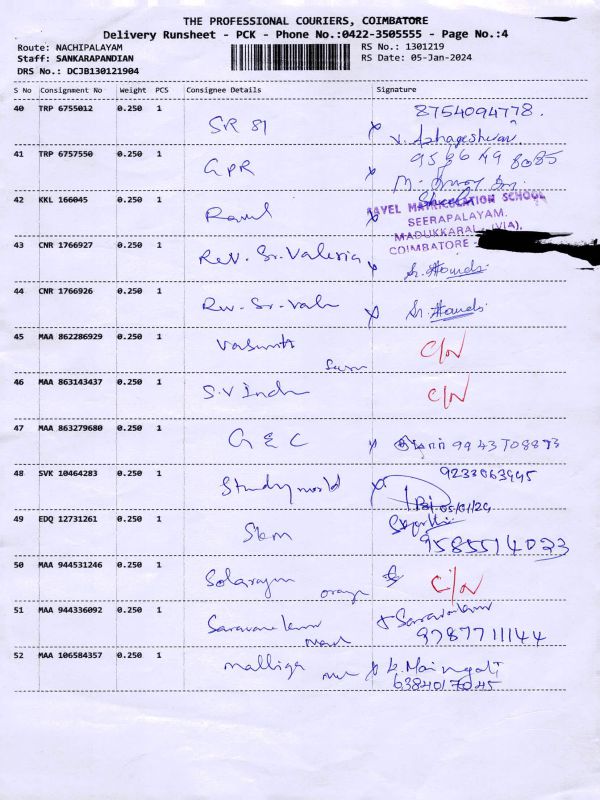 THE PROFESSIONAL COURIERS, COIMBATORE
Delivery Runsheet - PCK - Phone No.:0422-3505555 - Page No.:4
Route: NACHIPALAYAM RS No.: 1301219
Staff: SANKARAPANDIAN RS Date: 05-Jan-2024
DRS No.: DCJB130121904
S No Consignment No Weight PCS Consignee Details Signature
40 TRP 6755012 0.250 1 SR 81 8754094778.
41 TRP 6757550 0.250 1 GPR
42 KKL 166045 0.250 1 MATRICULATION SCHOOL
SEERAPALAYAM,
MADUKKARAI (VIA),
COIMBATORE
43 CNR 1766927 0.250 1 Rev. Sr. Valeria
44 CNR 1766926 0.250 1
45 MAA 862286929 0.250 1 C/N
46 MAA 863143437 0.250 1 C/N
47 MAA 863279680 0.250 1 G & C
48 SVK 10464283 0.250 1 Study world 9233063945
05/01/24
49 EDQ 12731261 0.250 1 SKM
9585514023
50 MAA 944531246 0.250 1 orange C/N
51 MAA 944336092 0.250 1
9787711144
52 MAA 106584357 0.250 1 malliga
6384017045